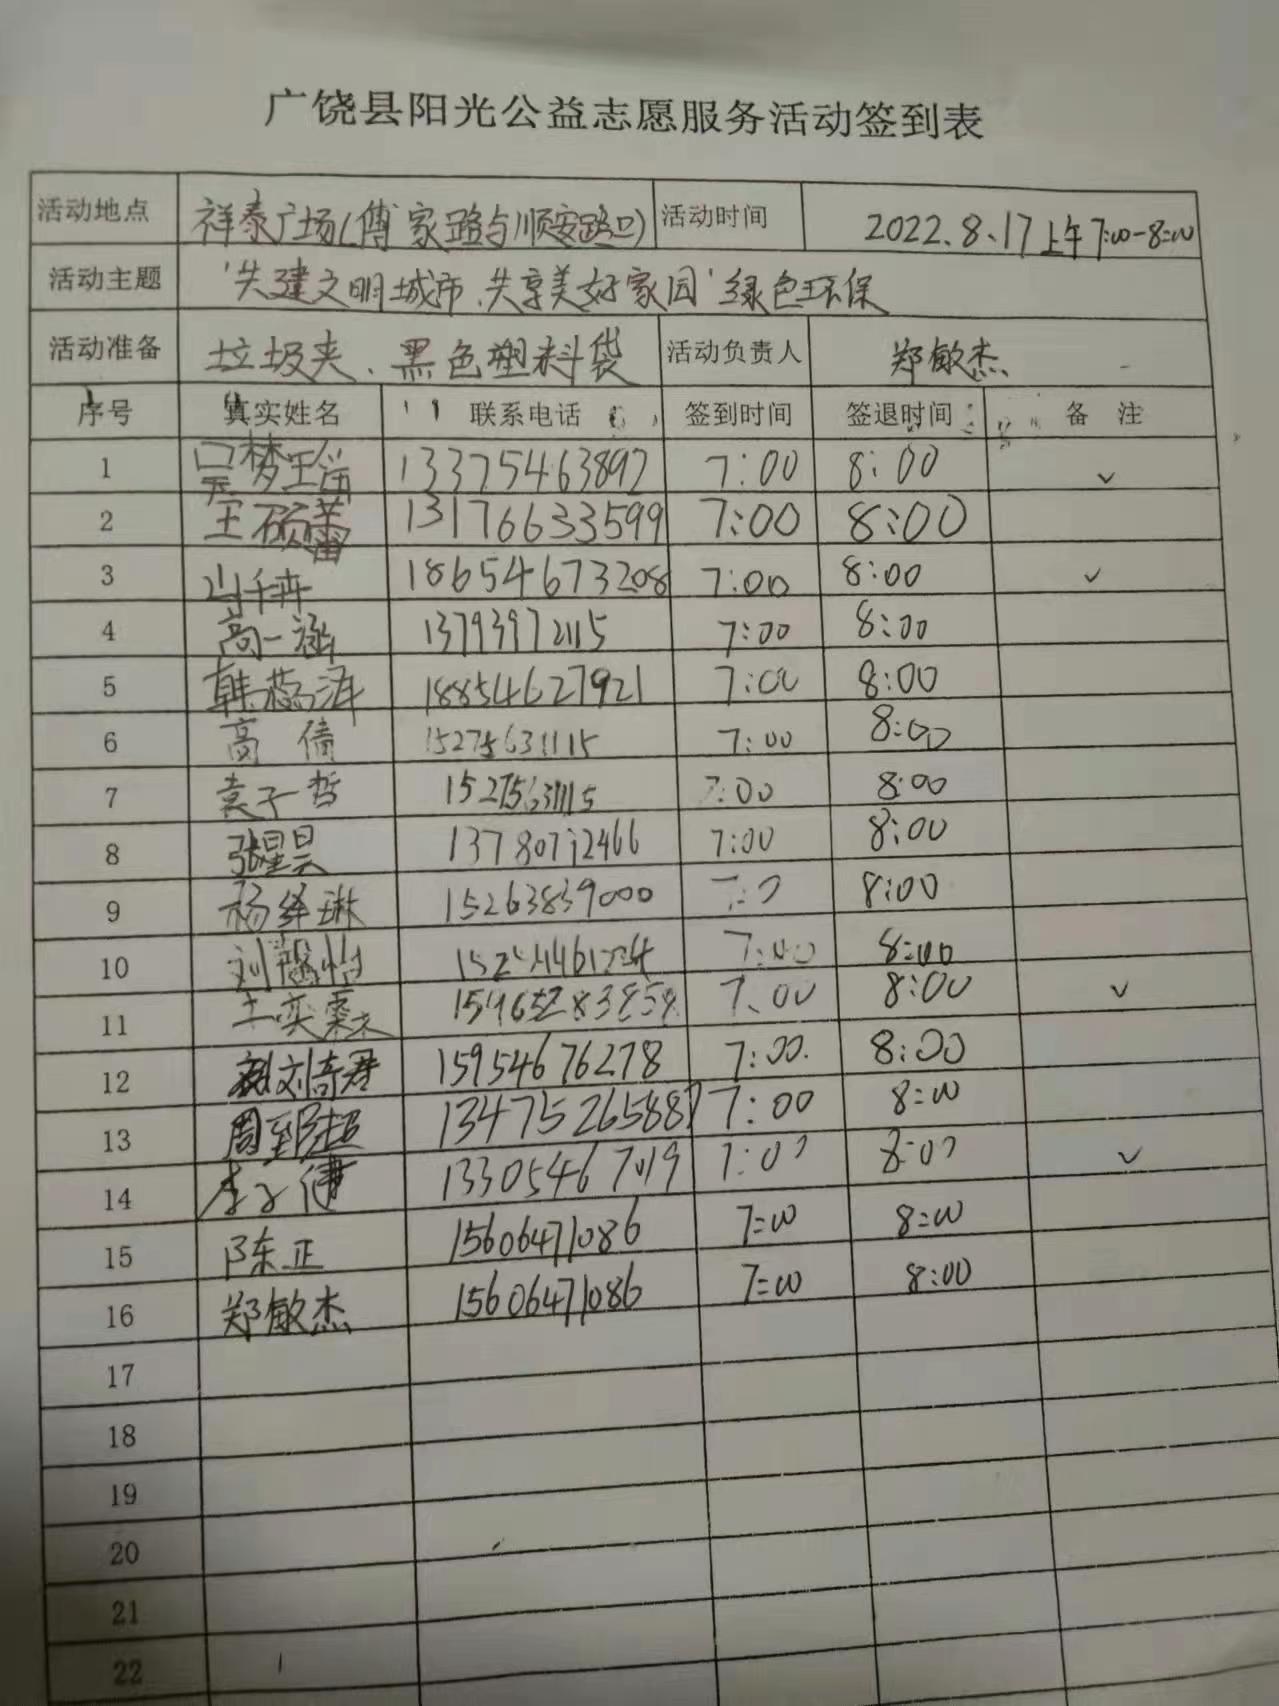 广饶县阳光公益志愿服务活动签到表
活动地点 祥泰广场(傅家路与顺安路口) 活动时间 2022.8.17上午7:00-8:00
活动主题 '共建文明城市、共享美好家园'绿色环保
活动准备 垃圾夹、黑色塑料袋 活动负责人 郑敏杰
序号 真实姓名 联系电话 签到时间 签退时间 备 注
1 吴梦瑶 13375463892 7:00 8:00 ✓
2 王硕蕾 13176633599 7:00 8:00
3 山千卉 18654673208 7:00 8:00 ✓
4 高一涵 13793972115 7:00 8:00
5 韩蕊泽 18854627921 7:00 8:00
6 高倩 15275631115 7:00 8:00
7 袁子哲 15275631115 7:00 8:00
8 张星昊 13780712466 7:00 8:00
9 杨绎琳 15263839000 8:00
10 刘怡 7:00 8:00
11 王奕 7:00 8:00 ✓
12 刘奇君 15954676278 7:00. 8:00
13 周至超 13475265887 7:00 8:00
14 李子健 13305467019 7:00 8:00 ✓
15 陈正 15606471086 7:00 8:00
16 郑敏杰 15606471086 7:00 8:00
17
18
19
20
21
22